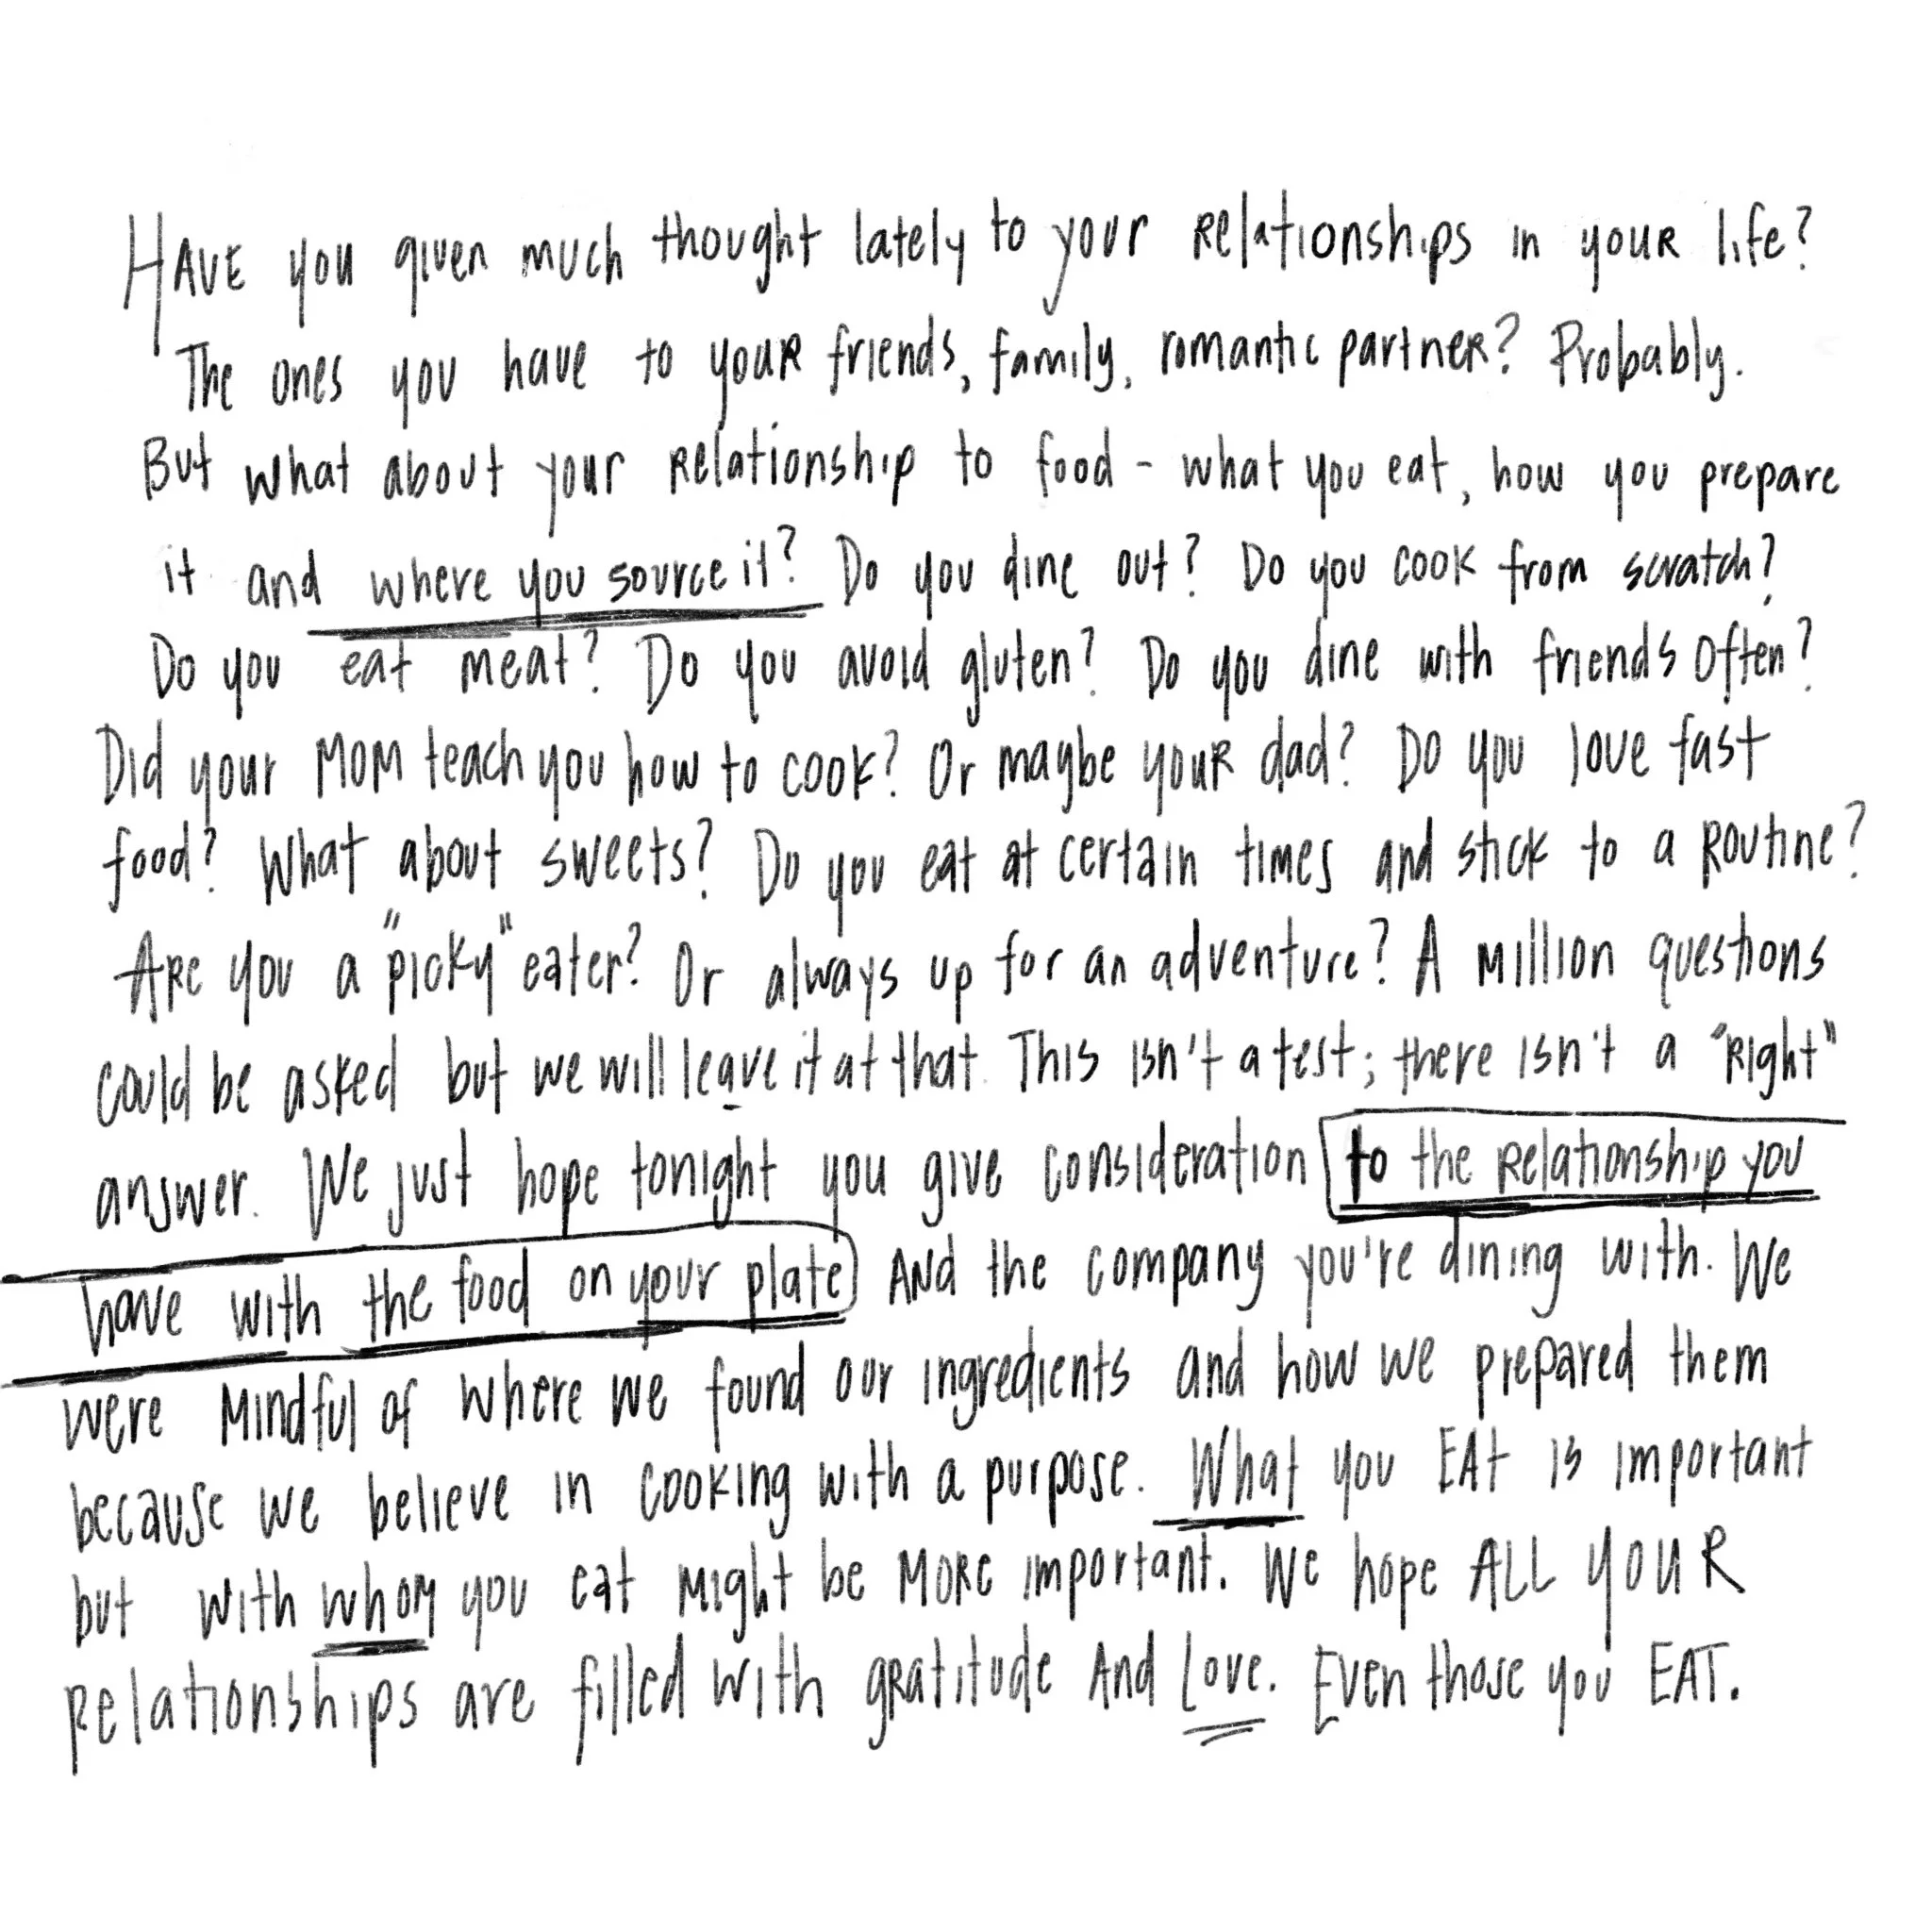 HAVE you given much thought lately to your Relationships in youR life?
The ones you have to youR friends, family, romantic partneR? Probably.
But what about your Relationship to food - what you eat, how you prepare
it and where you source it? Do you dine out? Do you cook from scratch?
Do you eat meat? Do you avoid gluten? Do you dine with friends Often?
Did your MOM teach you how to cook? Or maybe youR dad? Do you love fast
food? What about sweets? Do you eat at certain times and stick to a Routine?
Are you a "picky" eater? Or always up for an adventure? A million questions
could be asked but we will leave it at that. This isn't a test; there isn't a "Right"
answer. We just hope tonight you give consideration to the Relationship you
have with the food on your plate ANd the company you're dining with. We
were Mindful of where we found our ingredients and how we prepared them
because we believe in cooking with a purpose. What you EAt is important
but with whom you eat Might be MoRe important. We hope ALL YOUR
Relationships are filled with gRatitude And Love. Even those you EAT.